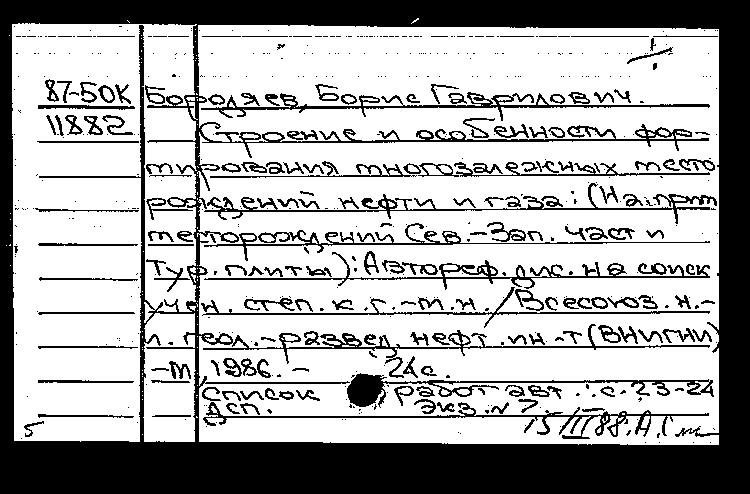 87-50К Бородяев, Борис Гаврилович.
11882 Строение и особенности фор-
мирования многозалежных место-
рождений нефти и газа: (На прим.
месторождений Сев.-Зап. части
Тур. плиты): Автореф. дис. на соиск.
учен. степ. к. г.-м. н. / Всесоюз. н.-
и. геол.-развед. нефт. ин-т (ВНИГНИ)
-М, 1986. - 24с.
Список работ авт.: с. 23-24
Дсп. Экз. № 7.
5 15/II 88. А.